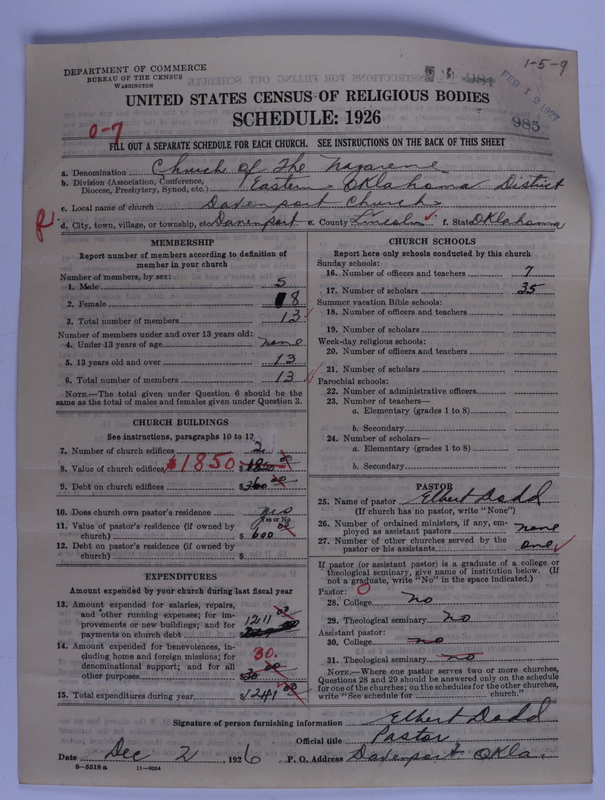 1-5-9
DEPARTMENT OF COMMERCE
BUREAU OF THE CENSUS
WASHINGTON
FEB 12 1927
985
UNITED STATES CENSUS OF RELIGIOUS BODIES
SCHEDULE: 1926
0-7
FILL OUT A SEPARATE SCHEDULE FOR EACH CHURCH. SEE INSTRUCTIONS ON THE BACK OF THIS SHEET
a. Denomination Church of The Nazarene
b. Division (Association, Conference, Diocese, Presbytery, Synod, etc.) Eastern Oklahoma District
c. Local name of church Davenport Church
d. City, town, village, or township, etc. Davenport e. County Lincoln f. State Oklahoma
MEMBERSHIP
Report number of members according to definition of
member in your church
Number of members, by sex:
1. Male 5
2. Female 8
3. Total number of members 13
Number of members under and over 13 years old:
4. Under 13 years of age none
5. 13 years old and over 13
6. Total number of members 13
NOTE.—The total given under Question 6 should be
same as the total of males and females given under Question 3.
CHURCH BUILDINGS
See instructions, paragraphs 10 to 12
7. Number of church edifices 2
8. Value of church edifices $1850 $1850 00
9. Debt on church edifices $360 00
10. Does church own pastor's residence yes
Yes or No
11. Value of pastor's residence (if owned by
church) $600 00
12. Debt on pastor's residence (if owned by
church) $
EXPENDITURES
Amount expended by your church during last fiscal year
13. Amount expended for salaries, repairs,
and other running expenses; for im-
provements or new buildings; and for
payments on church debt 1211 00
14. Amount expended for benevolences, in-
cluding home and foreign missions; for
denominational support; and for all
other purposes 30. $30 00
15. Total expenditures during year $1241 00
CHURCH SCHOOLS
Report here only schools conducted by this church
Sunday schools:
16. Number of officers and teachers 7
17. Number of scholars 35
Summer vacation Bible schools:
18. Number of officers and teachers
19. Number of scholars
Week-day religious schools:
20. Number of officers and teachers
21. Number of scholars
Parochial schools:
22. Number of administrative officers
23. Number of teachers—
a. Elementary (grades 1 to 8)
b. Secondary
24. Number of scholars—
a. Elementary (grades 1 to 8)
b. Secondary
PASTOR
25. Name of pastor Elbert Dodd
(If church has no pastor, write "None")
26. Number of ordained ministers, if any, em-
ployed as assistant pastors none
27. Number of other churches served by the
pastor or his assistants one
If pastor (or assistant pastor) is a graduate of a college or
theological seminary, give name of institution below. (If
not a graduate, write "No" in the space indicated.)
Pastor: 0
28. College no
29. Theological seminary no
Assistant pastor:
30. College no
31. Theological seminary no
NOTE.—Where one pastor serves two or more churches,
Questions 28 and 29 should be answered only on the schedule
for one of the churches; on the schedules for the other churches,
write "See schedule for church."
Signature of person furnishing information Elbert Dodd
Official title Pastor
Date Dec 2, 1926 P. O. Address Davenport Okla.
8-5518a 11-9054